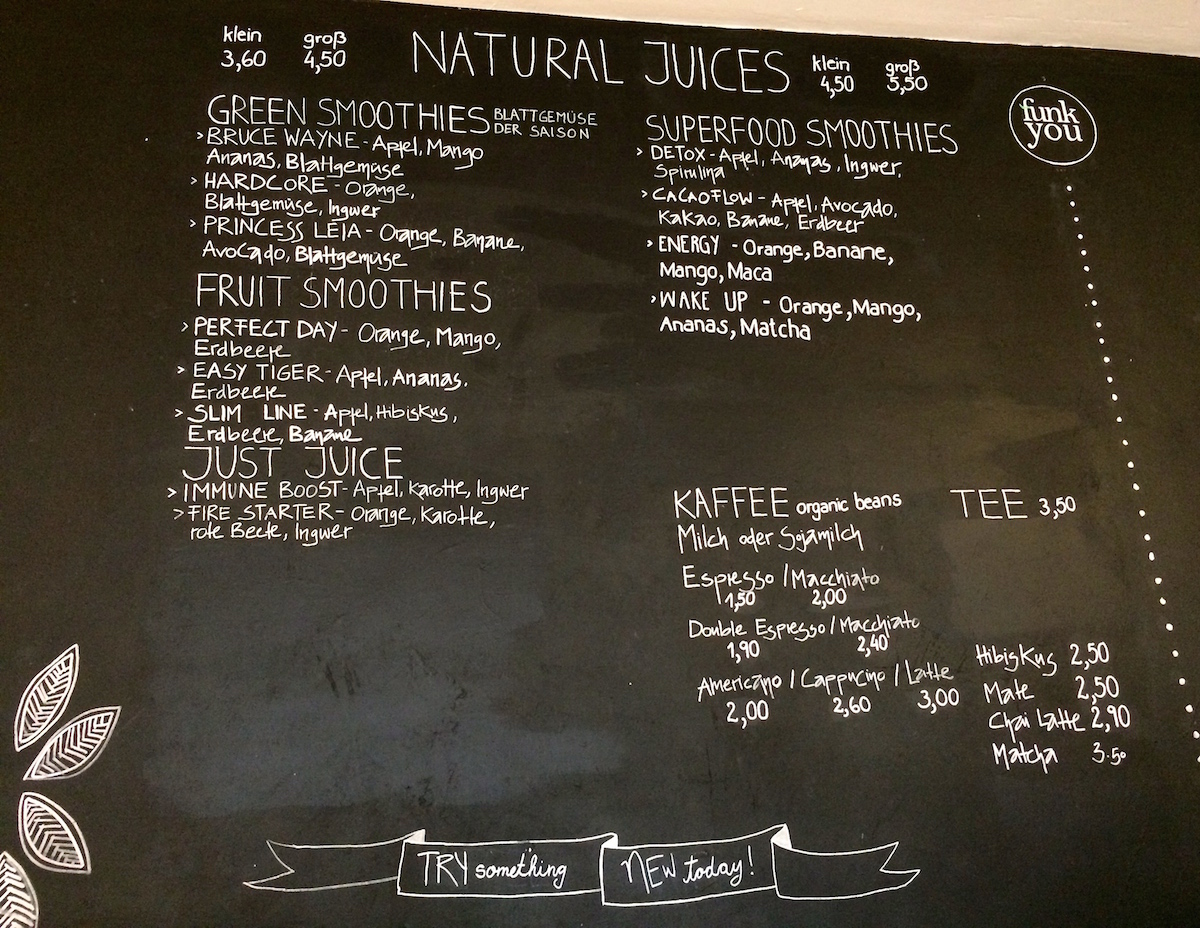 klein groß
3,60 4,50
NATURAL JUICES
klein groß
4,50 5,50
funk
you
GREEN SMOOTHIES BLATTGEMÜSE
DER SAISON
> BRUCE WAYNE - Apfel, Mango
Ananas, Blattgemüse
> HARDCORE - Orange,
Blattgemüse, Ingwer
> PRINCESS LEIA - Orange, Banane,
Avocado, Blattgemüse
FRUIT SMOOTHIES
> PERFECT DAY - Orange, Mango,
Erdbeere
> EASY TIGER - Apfel, Ananas,
Erdbeere
> SLIM LINE - Apfel, Hibiskus,
Erdbeere, Banane
JUST JUICE
> IMMUNE BOOST - Apfel, Karotte, Ingwer
> FIRE STARTER - Orange, Karotte,
rote Beete, Ingwer
SUPERFOOD SMOOTHIES
> DETOX - Apfel, Ananas, Ingwer,
Spirulina
> CACAOFLOW - Apfel, Avocado,
Kakao, Banane, Erdbeer
> ENERGY - Orange, Banane,
Mango, Maca
> WAKE UP - Orange, Mango,
Ananas, Matcha
KAFFEE organic beans
Milch oder Sojamilch
Espresso / Macchiato
1,50 2,00
Double Espresso / Macchiato
1,90 2,40
Americano / Cappucino / Latte
2,00 2,60 3,00
TEE 3,50
Hibiskus 2,50
Mate 2,50
Chai Latte 2,90
Matcha 3.50
TRY something NEW today!